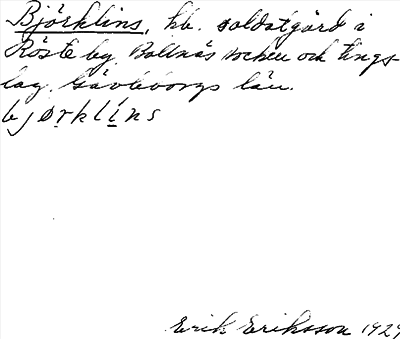 Björklins, hb. soldatgård i
Röste by, Bollnäs socken och tings-
lag. Gävleborgs län.
bjørklíns
Erik Eriksson 1929